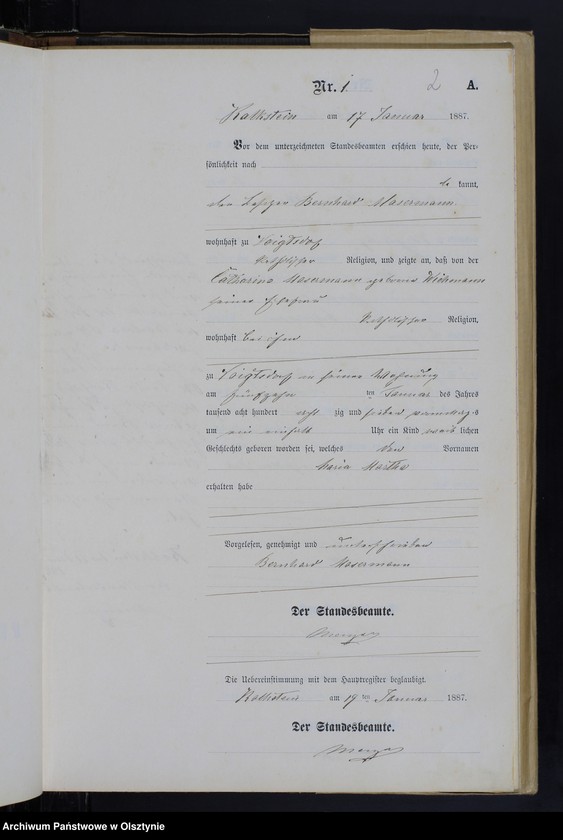 Nr. 1. 2 A.
Kalkstein am 17 Januar 1887.
Vor dem unterzeichneten Standesbeamten erschien heute, der Per-
sönlichkeit nach
be kannt,
der Besitzer Bernhard Masermann
wohnhaft zu Voigtsdorf
katholischer Religion, und zeigte an, daß von der
Catharina Masermann geborene Wichmann
seiner Ehefrau
katholischer Religion,
wohnhaft bei ihm
zu Voigtsdorf in seiner Wohnung
am fünfzehn ten Januar des Jahres
tausend acht hundert acht zig und sieben vormittags
um ein einhalb Uhr ein Kind weib lichen
Geschlechts geboren worden sei, welches den Vornamen
Maria Martha
erhalten habe
Vorgelesen, genehmigt und unterschrieben
Bernhard Masermann
Der Standesbeamte.
Die Uebereinstimmung mit dem Hauptregister beglaubigt.
Kalkstein am 19 ten Januar 1887.
Der Standesbeamte.
Archiwum Państwowe w Olsztynie